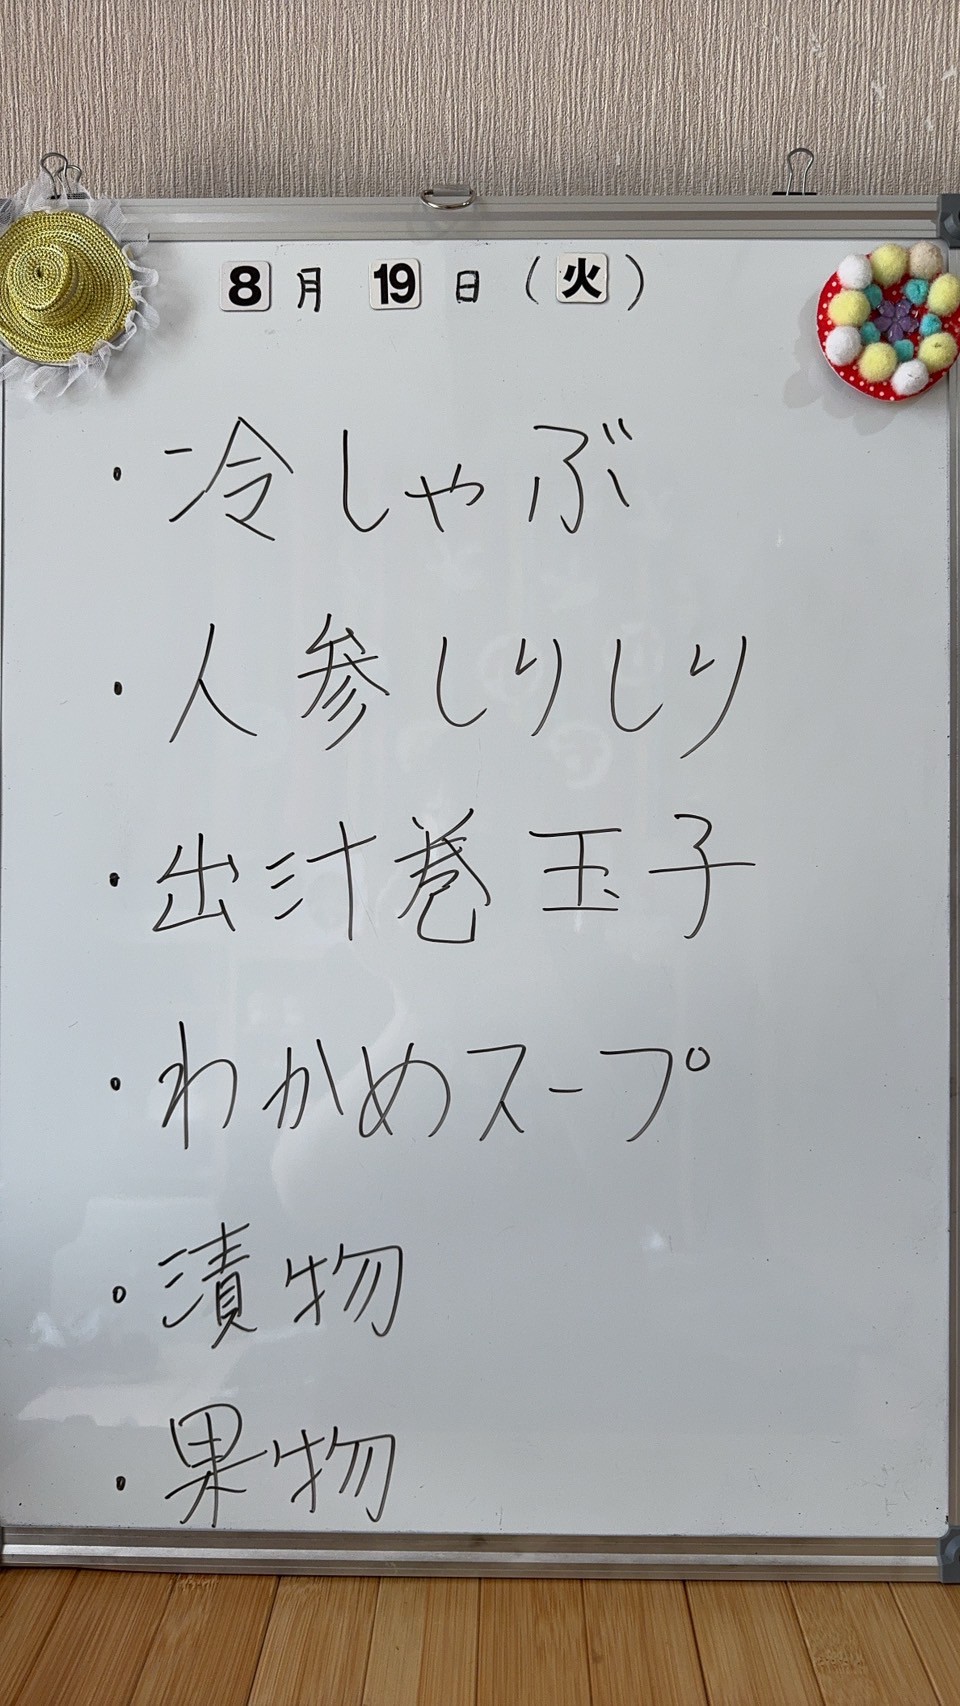 8月19日(火)
・冷しゃぶ
・人参しりしり
・出汁巻玉子
・わかめスープ
・漬物
・果物